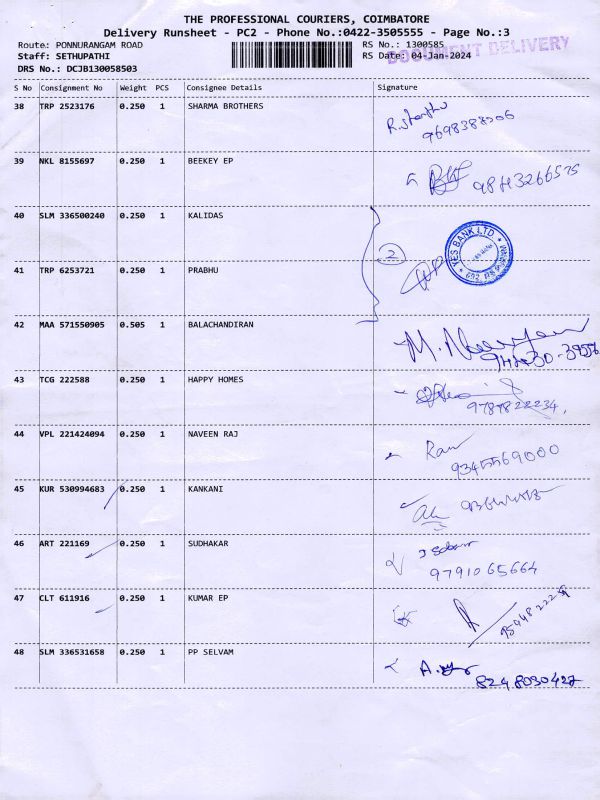 THE PROFESSIONAL COURIERS, COIMBATORE
Delivery Runsheet - PC2 - Phone No.:0422-3505555 - Page No.:3
Route: PONNURANGAM ROAD
Staff: SETHUPATHI
DRS No.: DCJB130058503
RS No.: 1300585
RS Date: 04-Jan-2024
DOCUMENT DELIVERY
S No Consignment No Weight PCS Consignee Details Signature
38 TRP 2523176 0.250 1 SHARMA BROTHERS
39 NKL 8155697 0.250 1 BEEKEY EP
40 SLM 336500240 0.250 1 KALIDAS
2
YES BANK LTD
41 TRP 6253721 0.250 1 PRABHU
42 MAA 571550905 0.505 1 BALACHANDIRAN
43 TCG 222588 0.250 1 HAPPY HOMES
9787822234,
44 VPL 221424094 0.250 1 NAVEEN RAJ
45 KUR 530994683 0.250 1 KANKANI
46 ART 221169 0.250 1 SUDHAKAR
9791065664
47 CLT 611916 0.250 1 KUMAR EP
48 SLM 336531658 0.250 1 PP SELVAM
8248030427